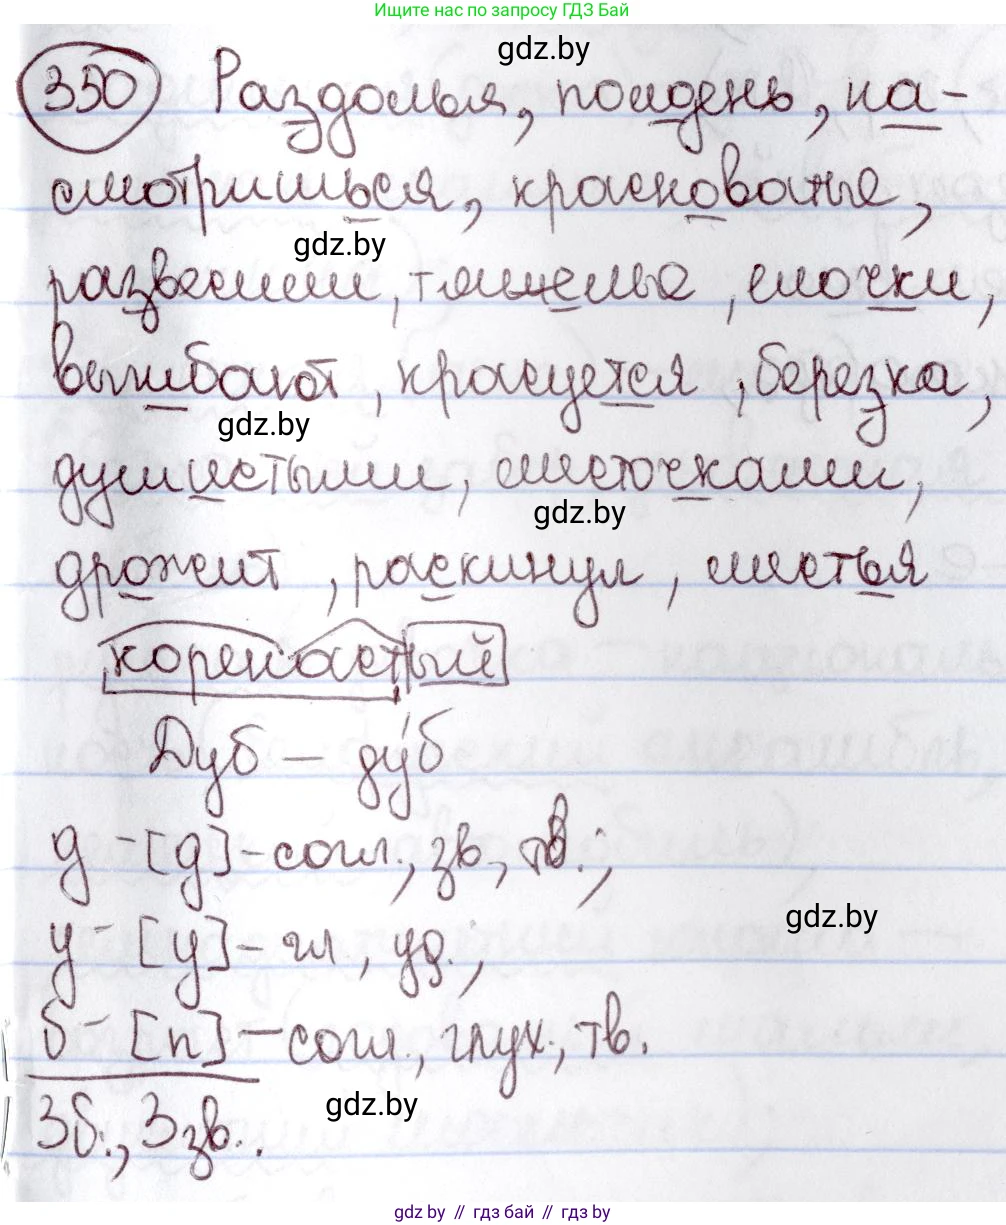 Ищите нас по запросу ГДЗ Бай
gdz.by
350 Раздолья, полдень, на-
смотришься, краснованые,
gdz.by
развесили, тяжелые, елочки,
выгибают, красуется, березка,
gdz.by
душистыми, листочками,
gdz.by
дрожит, раскинул, листья
коренастый
Дуб – ду́б
д – [д] – согл., зв., тв.;
gdz.by
у – [у] – гл., уд.;
б – [п] – согл., глух., тв.
gdz.by
3б., 3 зв.
gdz.by // гдз бай // гдз by